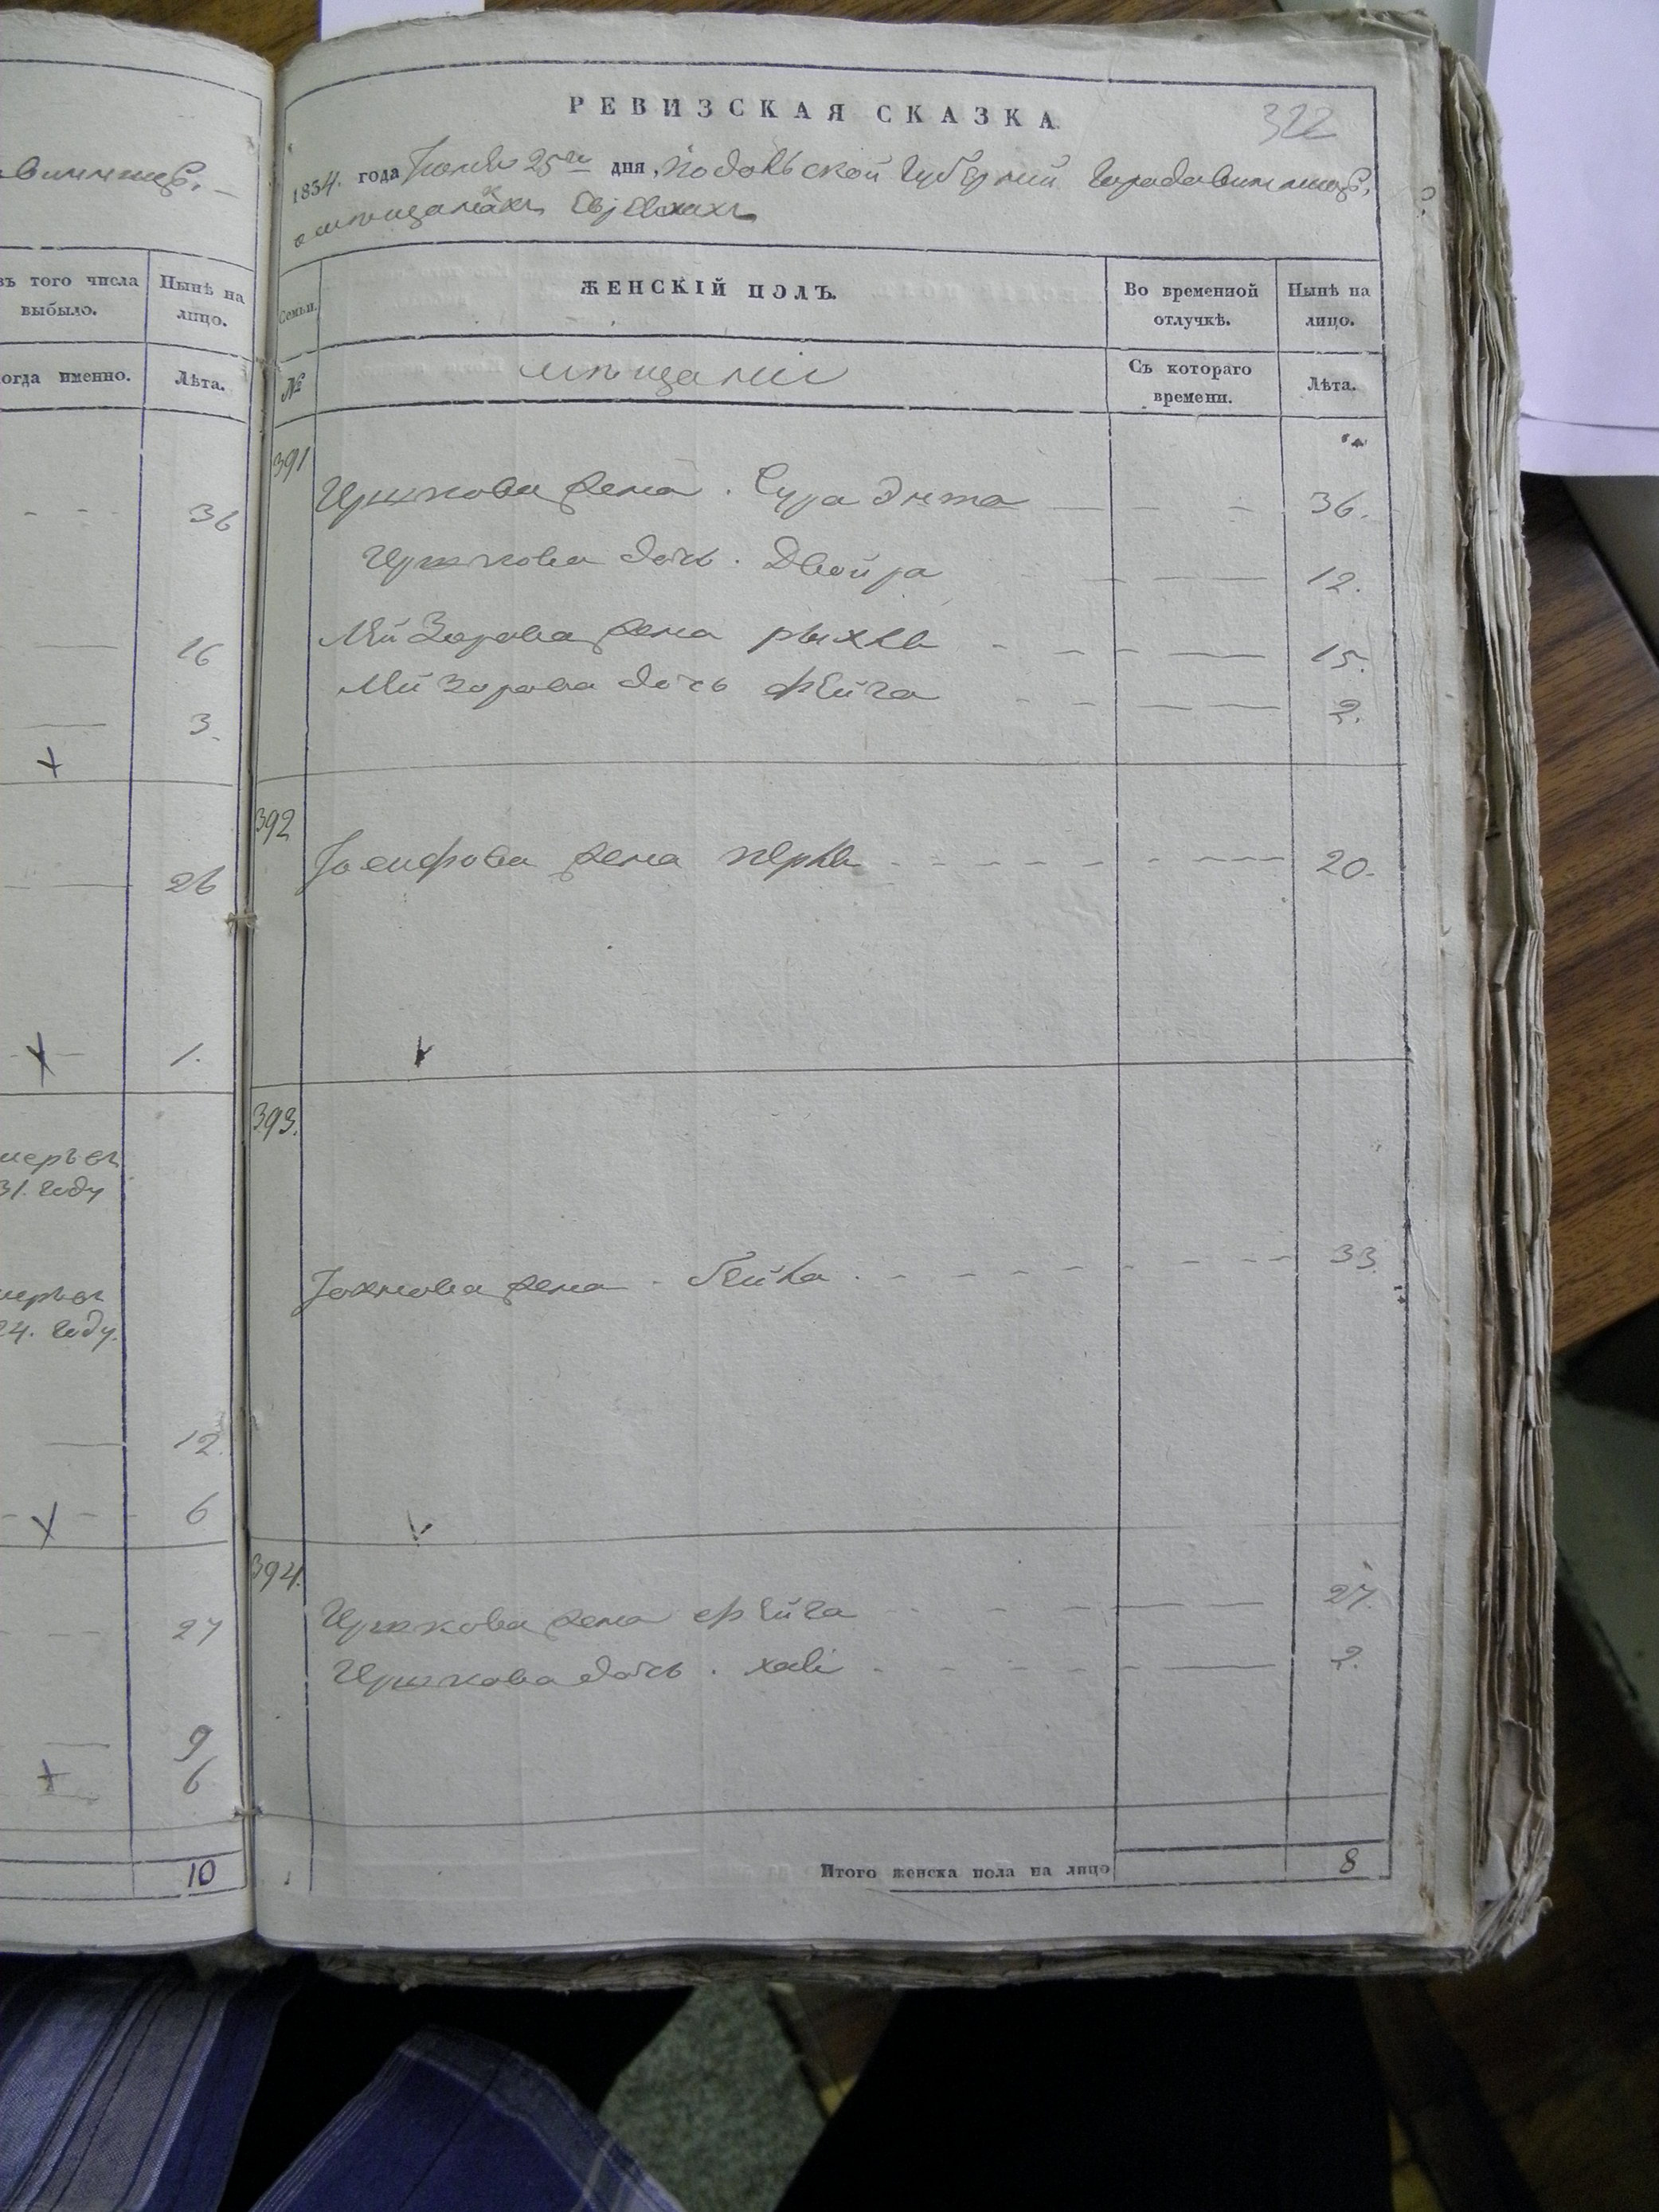 РЕВИЗСКАЯ СКАЗКА
322
1834. года Июня 25го дня, Подольской Губернии Города Винницы,
о мещанахъ Евреяхъ
Семьи.
ЖЕНСКІЙ ПОЛЪ.
Во временной отлучкѣ.
Нынѣ на лицо.
№
мещанѣ
Съ котораго времени.
Лѣта.
391
Ицкова жена. Сура Энта 36.
Ицкова дочь. Двойра 12.
Лейзорова жена Рыхля 15.
Лейзорова дочь Фейга 2.
392
Іосифова жена Перля 20.
393.
жена Бейла 33.
394.
Ицкова жена Фейга 27.
Ицкова дочь. 2.
Итого женска пола на лицо 8
въ того числа выбыло.
Нынѣ на лицо.
огда именно.
Лѣта.
36
16
3.
26
1.
31. году
24. году.
12.
6
27
9
6
10